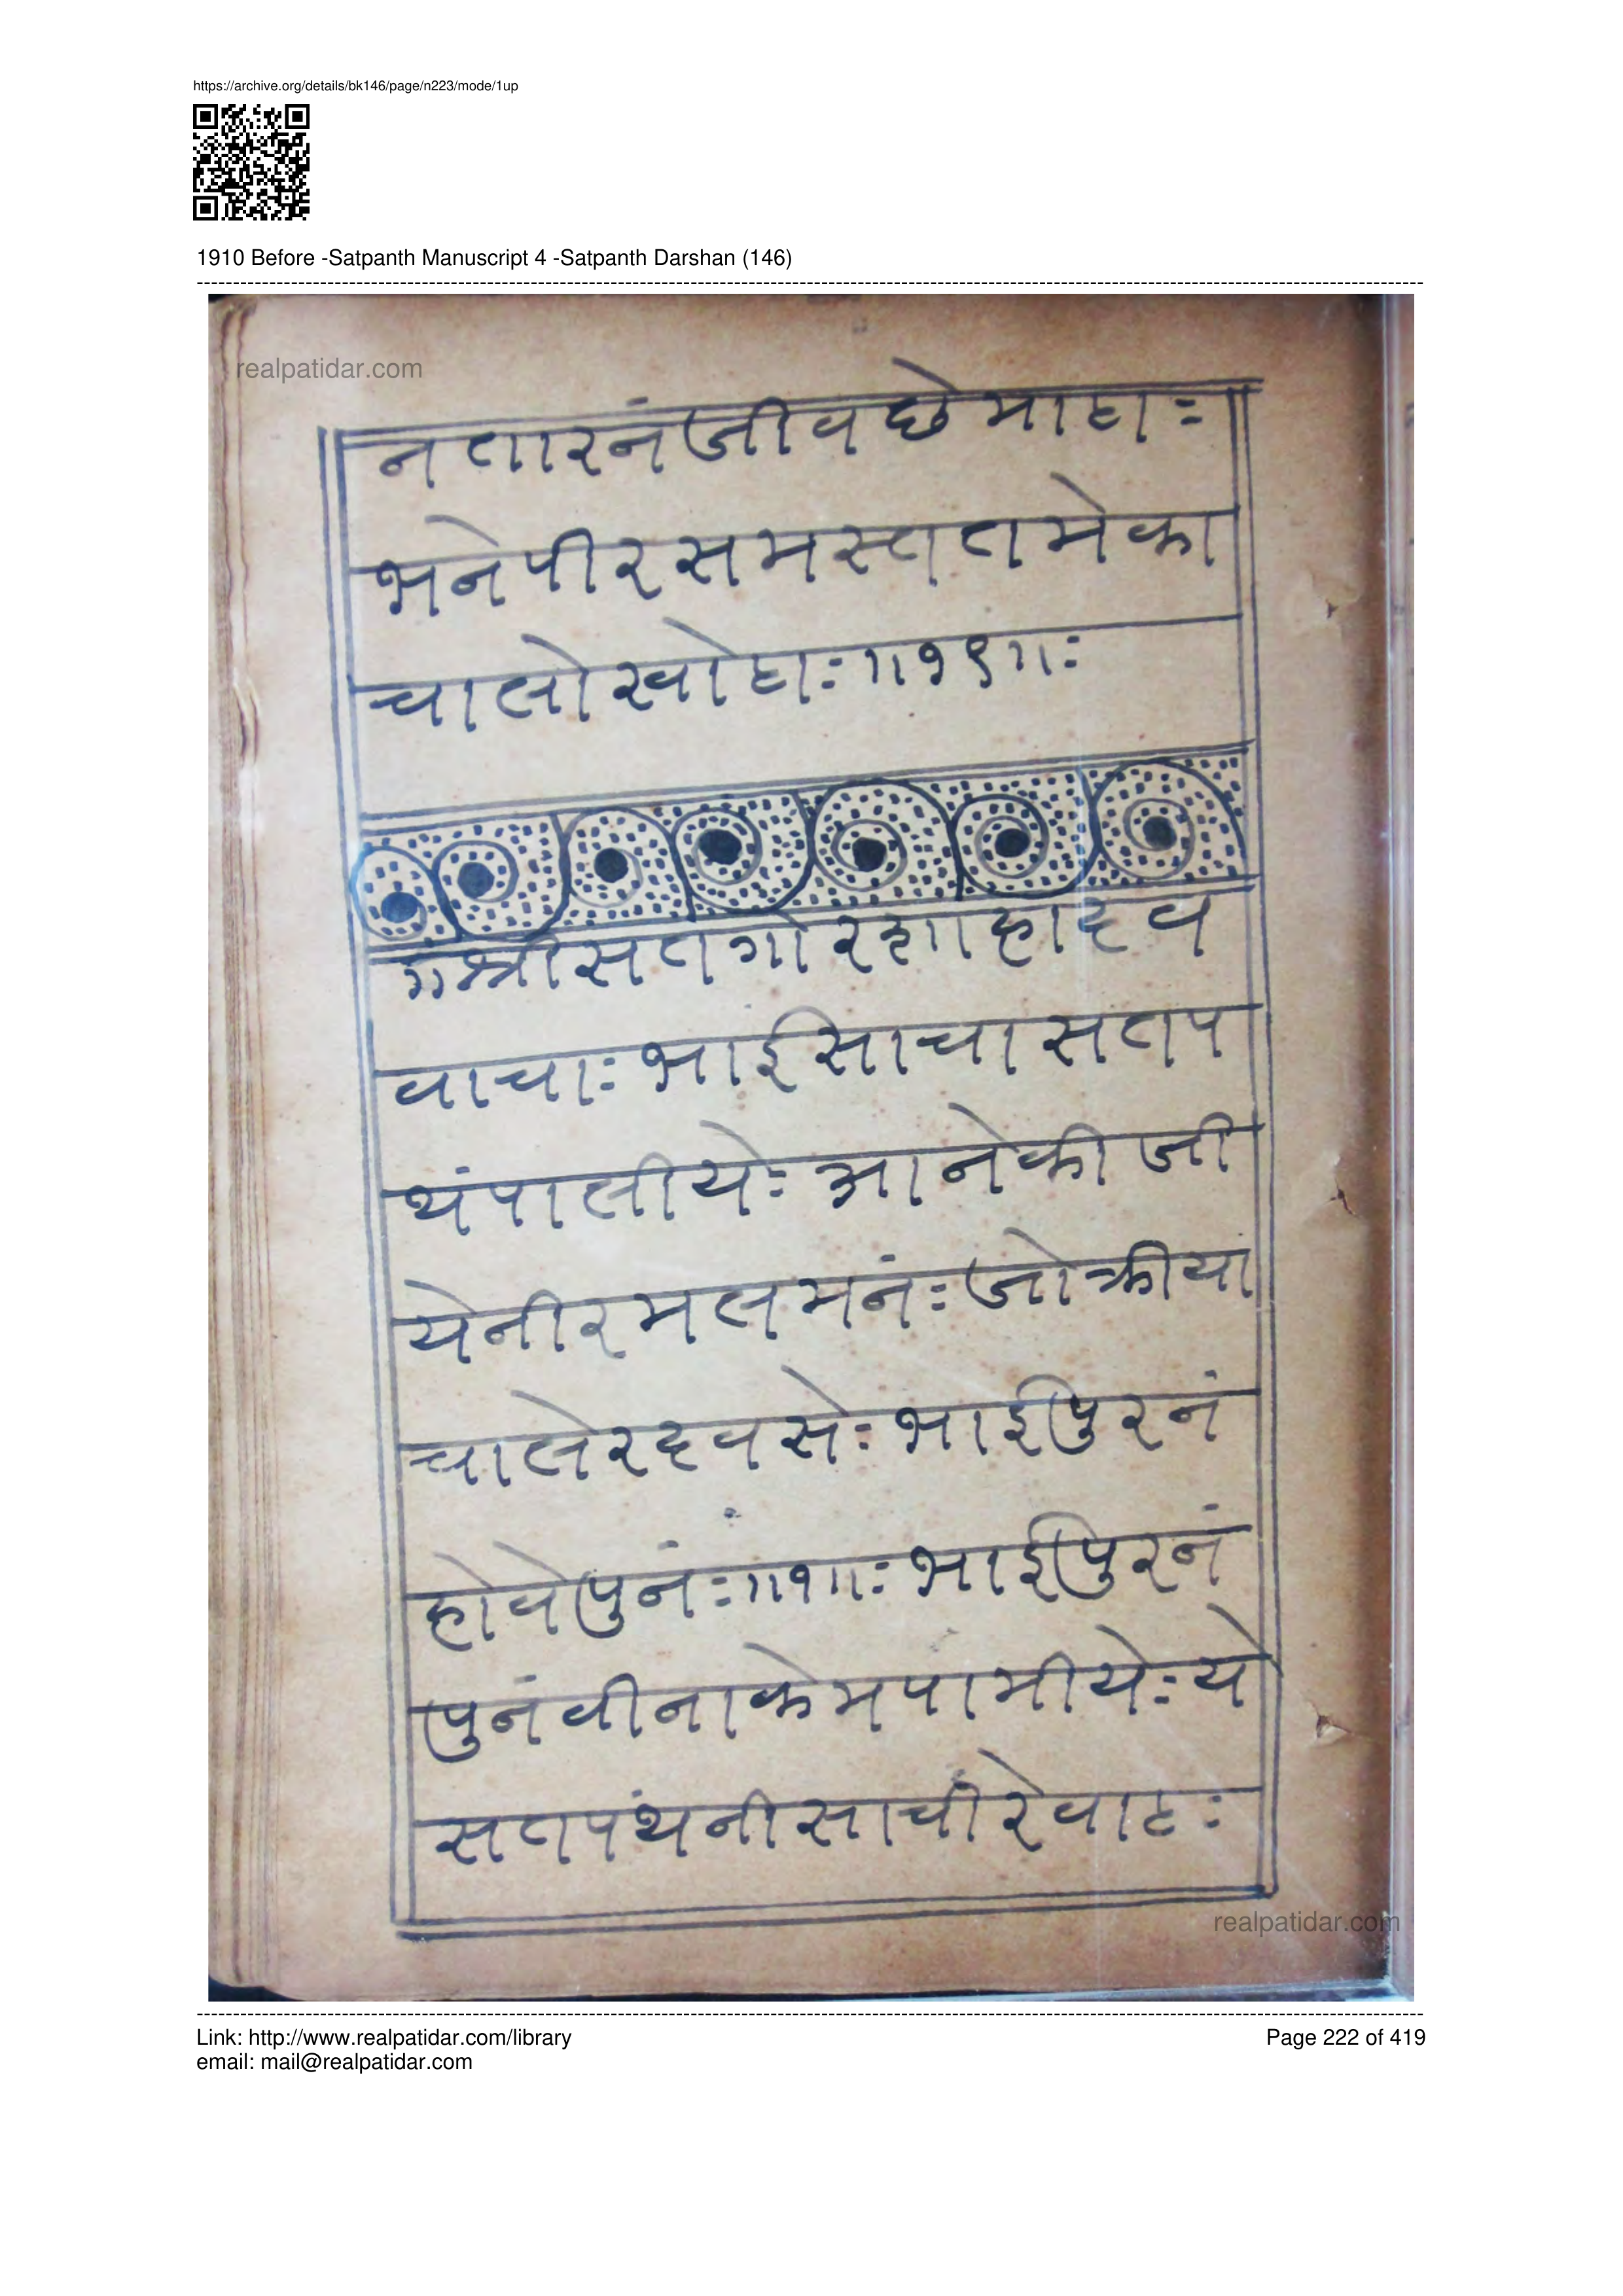 https://archive.org/details/bk146/page/n223/mode/1up
1910 Before -Satpanth Manuscript 4 -Satpanth Darshan (146)
realpatidar.com
नतारनंजीवछेमाहाः
भनेपीरसमस्ततमेका
चालोखोहाः॥१९॥ः
॥श्रीसतगोरशाहादव
वाचाः भाईसाचासतप
थंपालीयेः आनेकीजी
येनीरमलमनंः जोक्रीया
चालेरदवसेः भाईपुरनं
होवेपुनंः॥१॥ः भाईपुरनं
पुनंवीनाकेमपामीयेः ये
सतपंथनीसाचीरेवाटः
realpatidar.com
Link: http://www.realpatidar.com/library
Page 222 of 419
email: mail@realpatidar.com